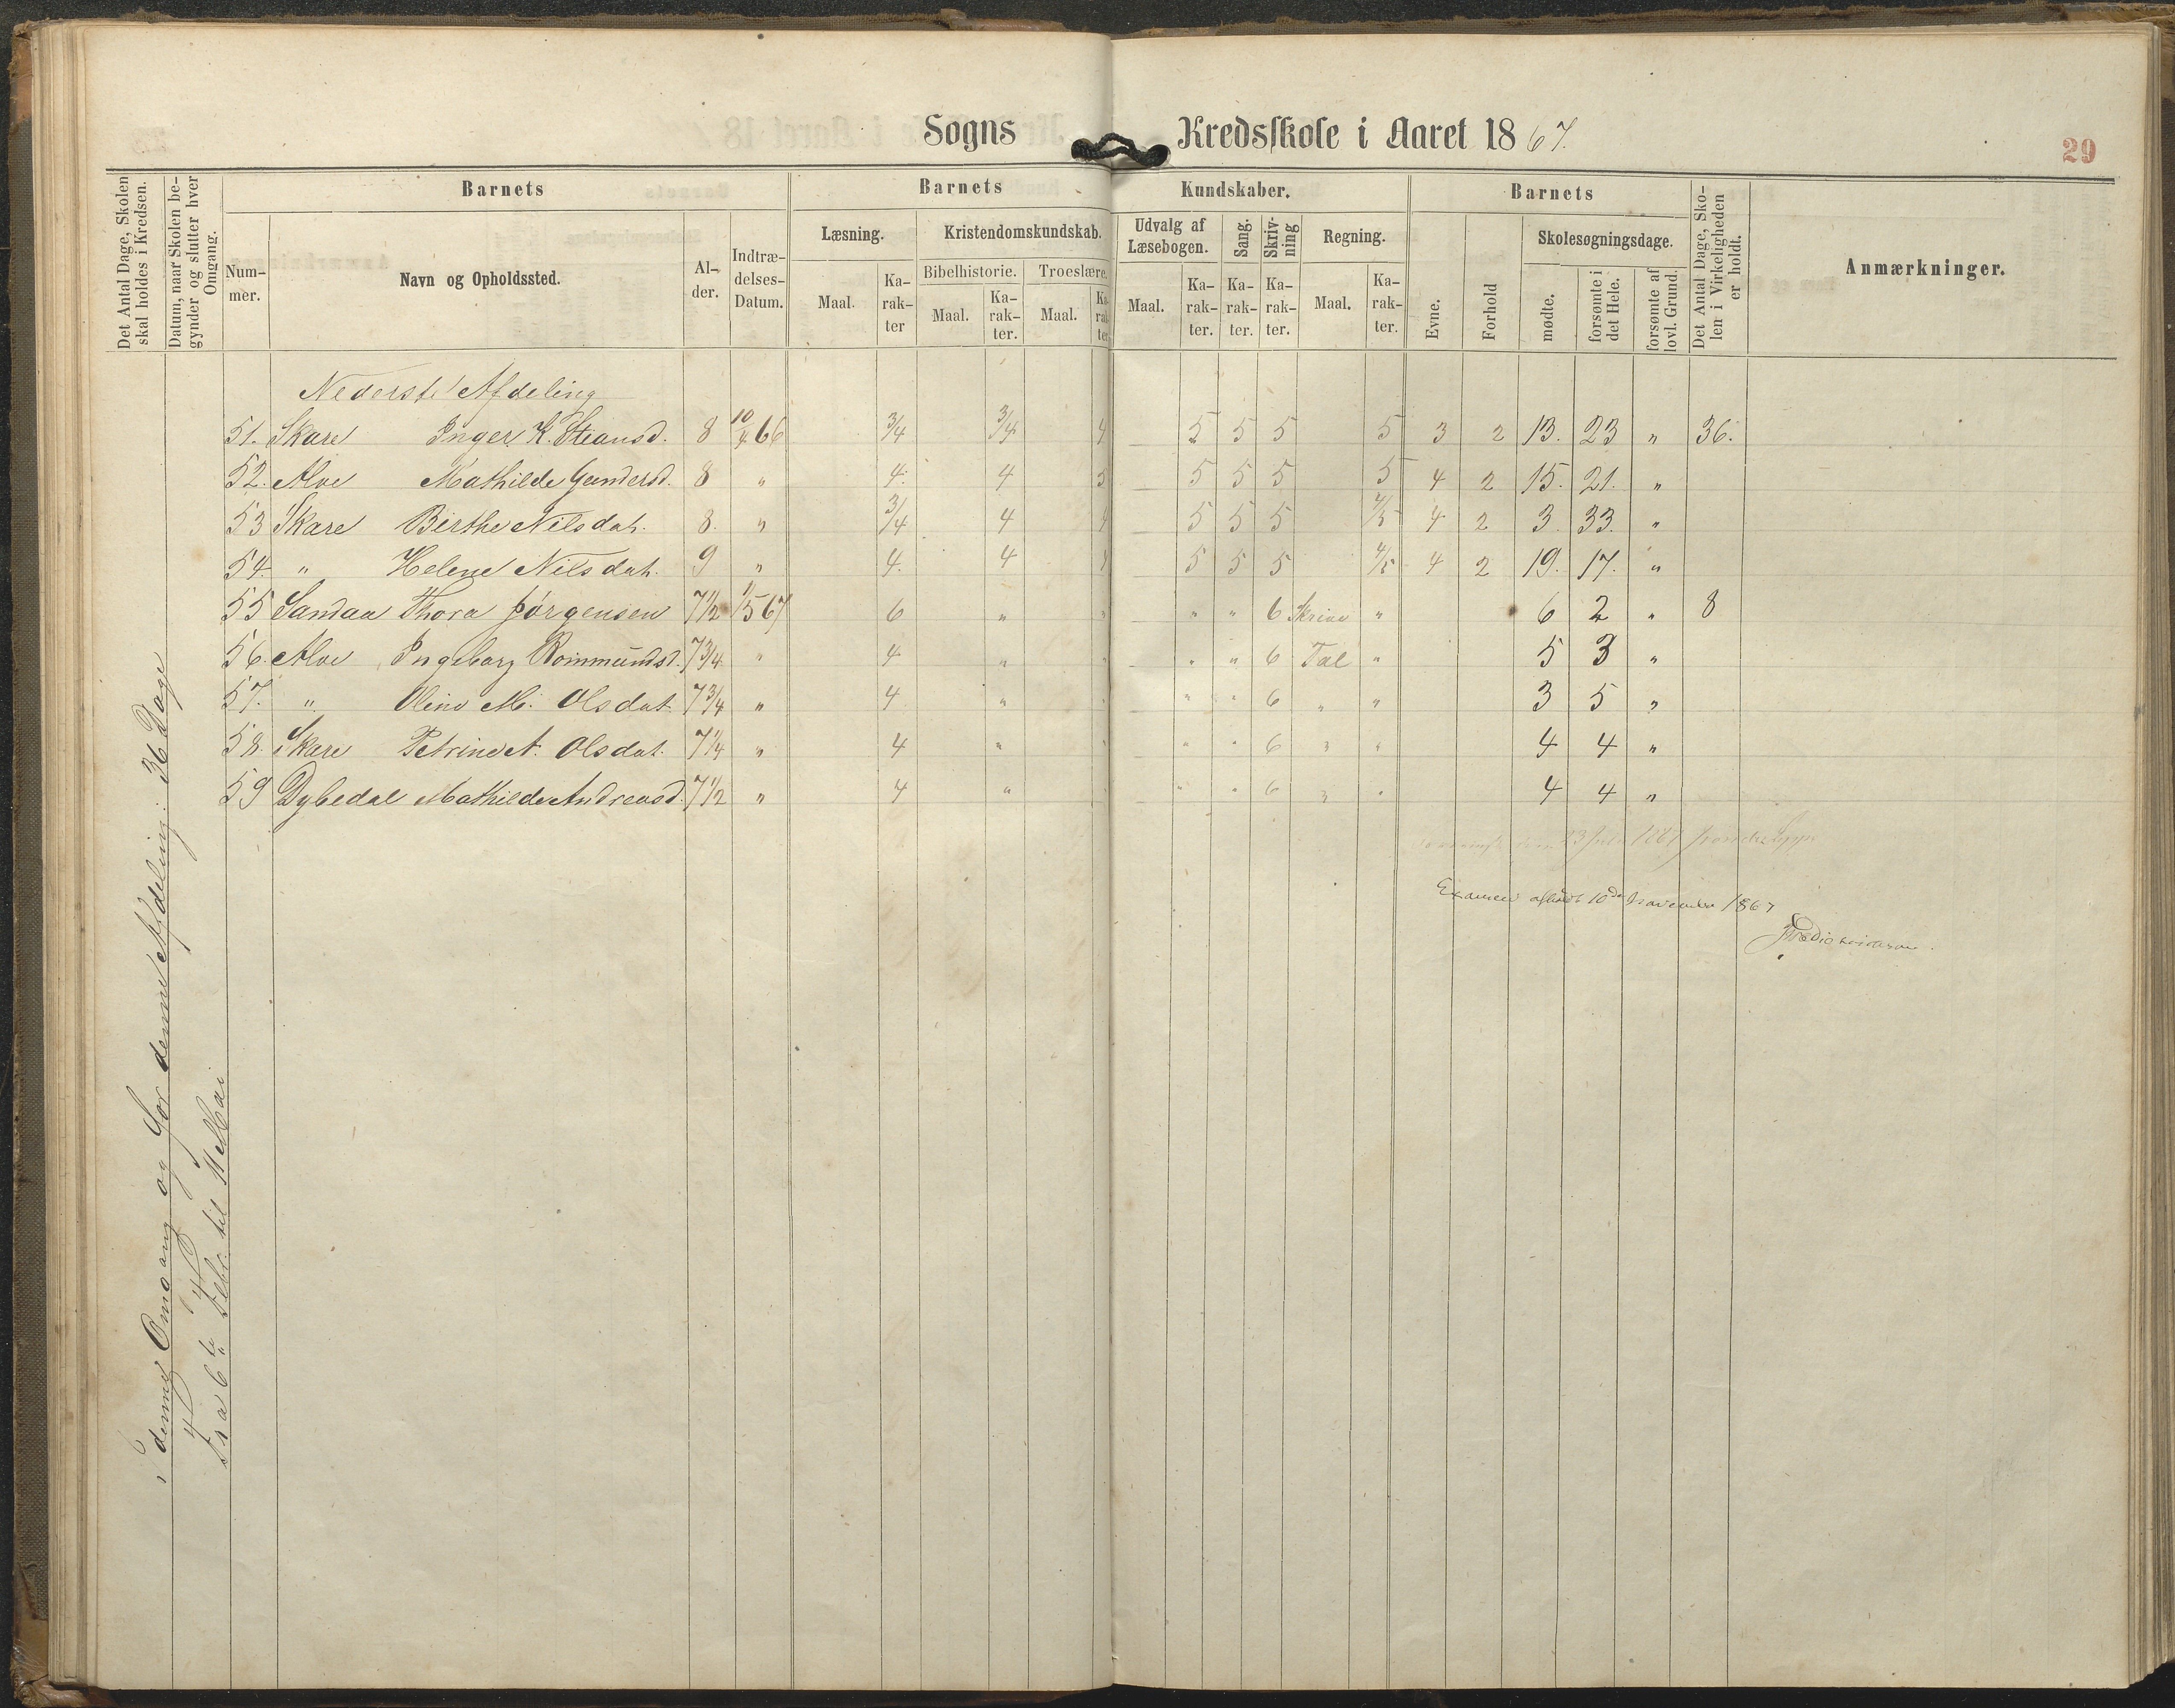 Sogns Kredsskole i Aaret 1867.
29
Det Antal Dage, Skolen skal holdes i Kredsen.
Datum, naar Skolen begynder og slutter hver Omgang.
Barnets
Barnets Kundskaber.
Barnets
Det Antal Dage, Skolen i Virkeligheden er holdt.
Anmærkninger.
Nummer.
Navn og Opholdssted.
Alder.
Indtrædelses-Datum.
Læsning.
Kristendomskundskab.
Udvalg af Læsebogen.
Sang.
Skrivning
Regning.
Evne.
Forhold
Skolesøgningsdage.
Bibelhistorie.
Troeslære.
Maal.
Karakter
Maal.
Karakter.
Maal.
Karakter.
Maal.
Karakter.
Karakter.
Karakter.
Maal.
Karakter.
mødte.
forsømte i det Hele.
forsømte af lovl. Grund.
Nederste Afdeling
51. Skare Inger K. Steansd. 8 10/4 66 3/4 3/4 4 5 5 5 5 3 2 13. 23 " 36.
52. Alve Mathilde Gundersd. 8 " 4. 4 5 5 5 5 5 4 2 15. 21. "
53 Skare Birthe Nilsdat. 8. " 3/4 4 4 5 5 5 4/5 4 2 3. 33. "
54. " Helene Nilsdat. 9 " 4. 4 4 5 5 5 4/5 4 2 19. 17. "
55 Sandaa Thora Jörgensen 7 1/2 1/5 67 6 " " " " 6 Skrive " 6 2 " 8
56. Alve Ingeborg Rommundsd. 7 3/4 " 4 " " " " 6 Tal " 5 3 "
57. " Oline M. Olsdat. 7 3/4 " 4 " " " " 6 " " 3 5 "
58. Skare Petrine A. Olsdat. 7 1/4 " 4 " " " " 6 " " 4 4 "
59 Dybedal Mathilde Andreasd. 7 1/2 " 4 " " " " 6 " " 4 4 "
den 23 Juli 1867
Examen afholdt 10de November 1867
I denne Omgang og for denne Afdeling: 36 Dage
Fra 6te Febr. til 11 Mai